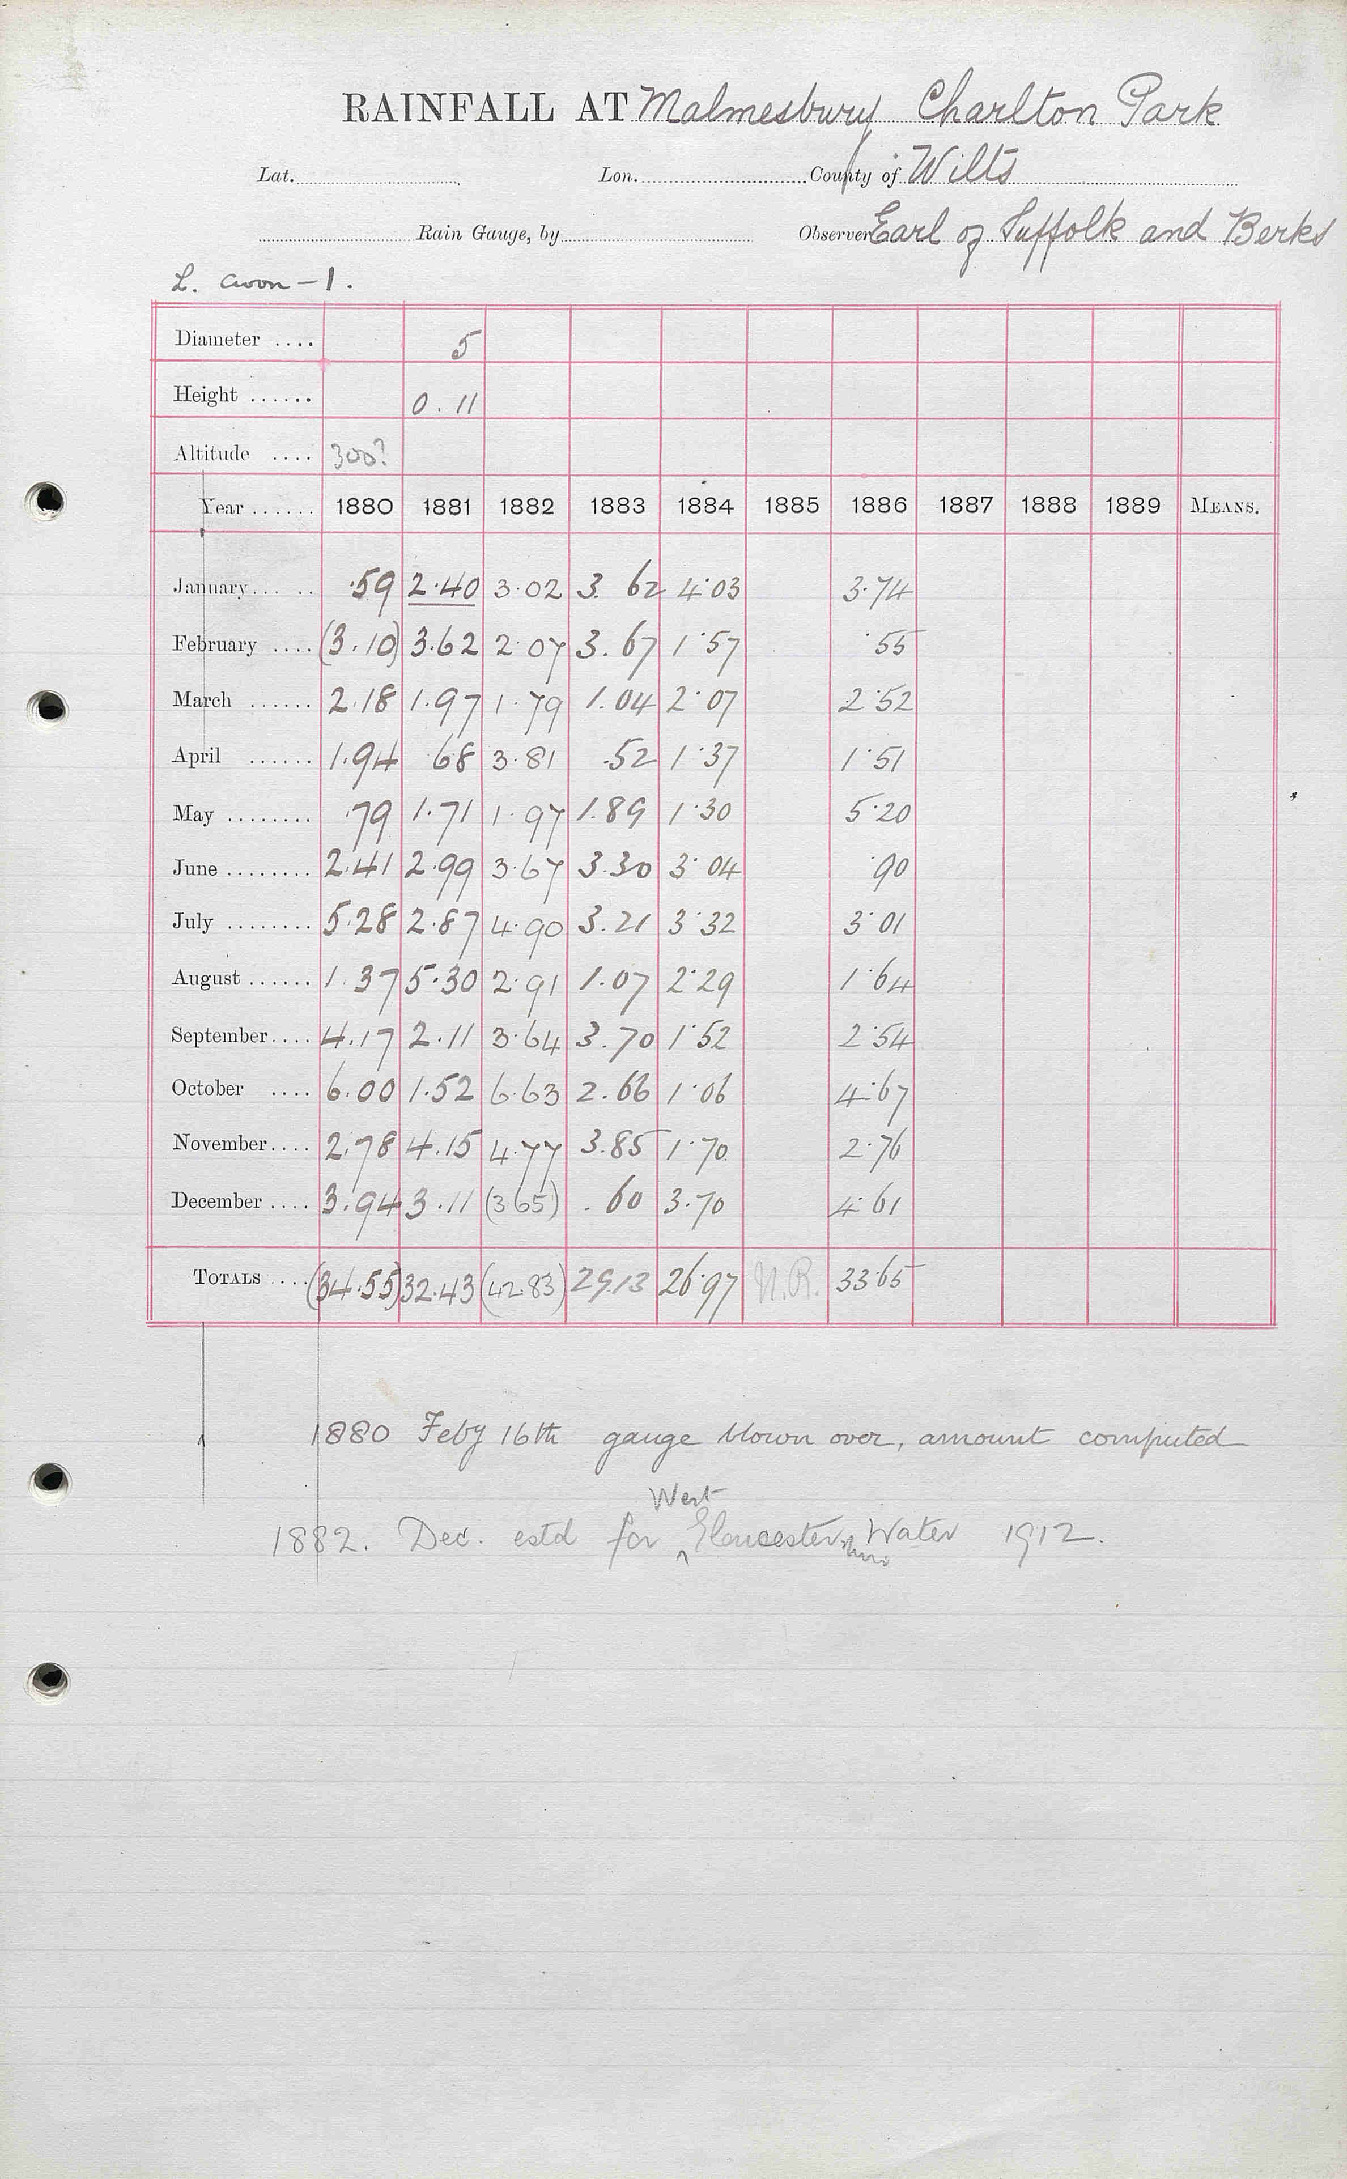 RAINFALL AT Malmesbury Charlton Park
Lat. Lon. County of Wilts
Rain Gauge, by Observer Earl of Suffolk and Berks
L. Avon - 1.
Diameter .... 5
Height ...... 0.11
Altitude .... 300?
Year ...... 1880 1881 1882 1883 1884 1885 1886 1887 1888 1889 MEANS.
January ... .. .59 2.40 3.02 3.62 4.03 3.74
February .... (3.10) 3.62 2.07 3.67 1.57 .55
March ...... 2.18 1.97 1.79 1.04 2.07 2.52
April ...... 1.94 .68 3.81 .52 1.37 1.51
May ........ .79 1.71 1.97 1.89 1.30 5.20
June ........ 2.41 2.99 3.67 3.30 3.04 .90
July ........ 5.28 2.87 4.90 3.21 3.32 3.01
August ...... 1.37 5.30 2.91 1.07 2.29 1.64
September .... 4.17 2.11 3.64 3.70 1.52 2.54
October .... 6.00 1.52 6.63 2.66 1.06 4.67
November .... 2.78 4.15 4.77 3.85 1.70 2.76
December .... 3.94 3.11 (3.65) .60 3.70 4.61
TOTALS .... (34.55) 32.43 (42.83) 29.13 26.97 N.R. 33.65
1880 Feby 16th gauge blown over, amount computed
West
1882. Dec. estd for ^ Gloucestershire Water 1912.